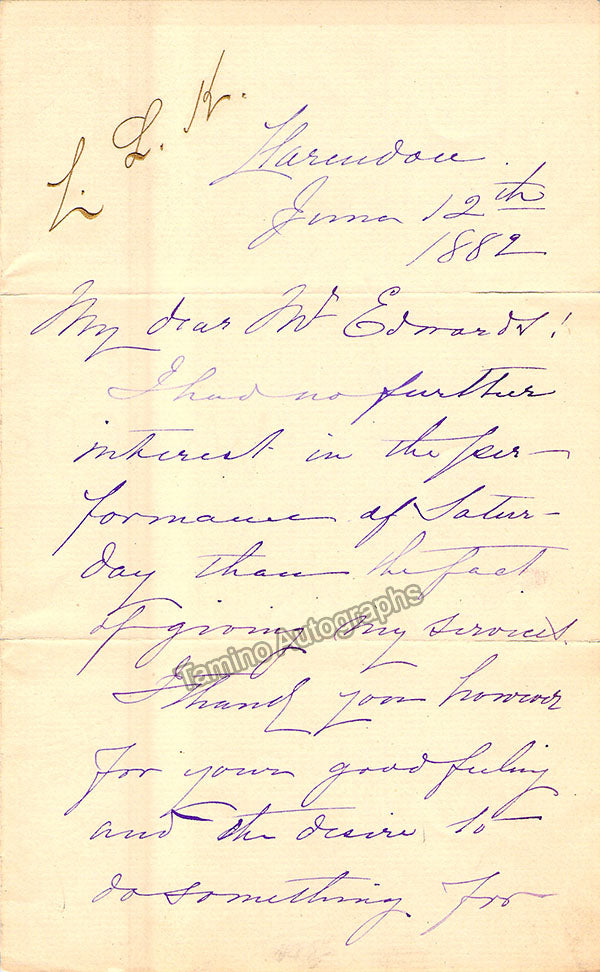 L. L. K.
Clarendon.
June 12th
1882
My dear Mr Edwards!
I had no further
interest in the per-
formance of Satur-
day than the fact
of giving my services.
Tamino Autographs
I thank you however
for your good feeling
and the desire to
do something for